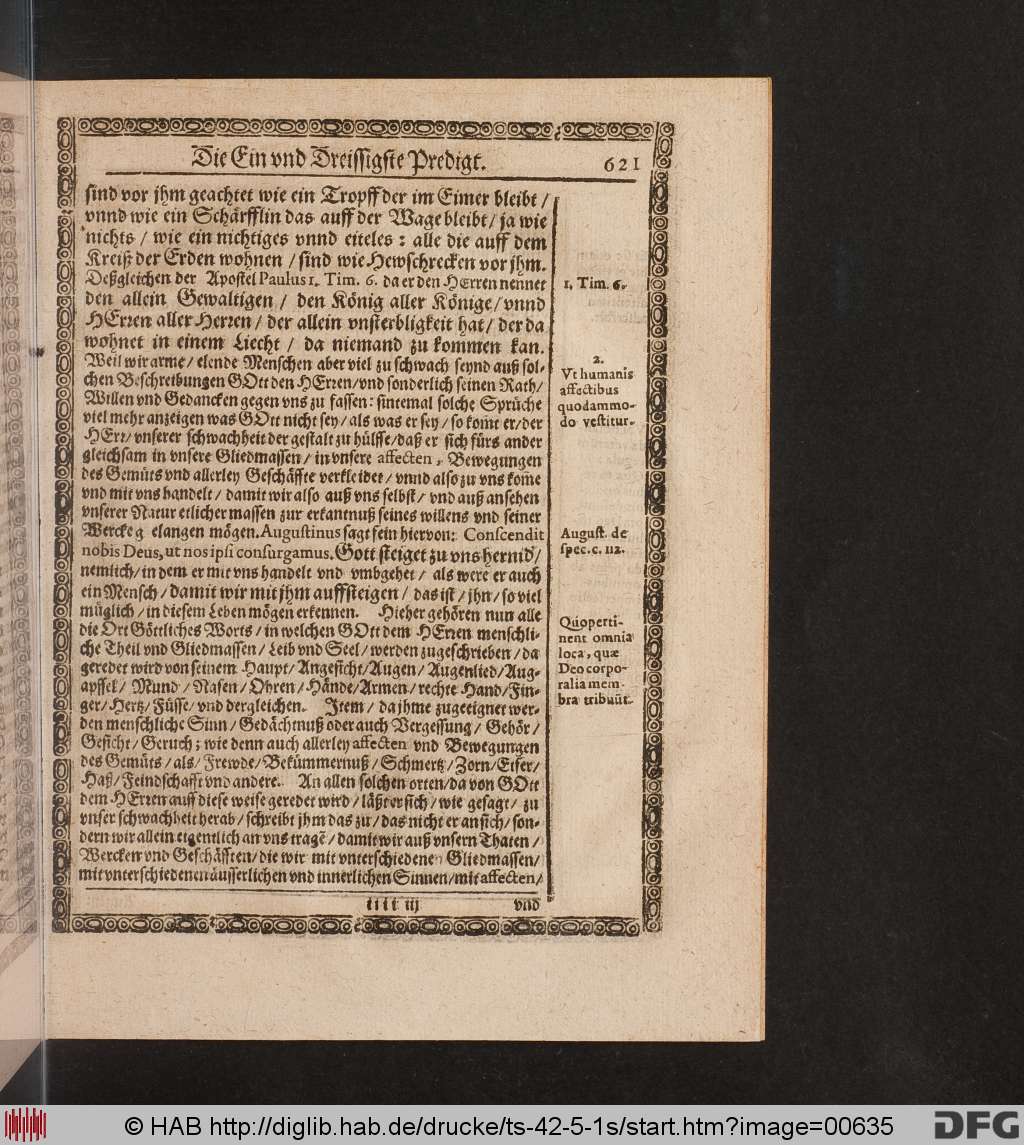 Die Ein vnd Dreissigste Predigt. 621
sind vor jhm geachtet wie ein Tropff der im Eimer bleibt /
vnnd wie ein Schärfflin das auff der Wage bleibt / ja wie
nichts / wie ein nichtiges vnnd eiteles : alle die auff dem
Kreiß der Erden wohnen / sind wie Hewschrecken vor jhm.
Deßgleichen der Apostel Paulus 1. Tim. 6. da er den HErren nennet
den allein Gewaltigen / den König aller Könige / vnnd
HErren aller Herren / der allein vnsterbligkeit hat / der da
wohnet in einem Liecht / da niemand zu kommen kan.
Weil wir arme / elende Menschen aber viel zu schwach seynd auß sol-
chen Beschreibungen GOtt den HErren / vnd sonderlich seinen Rath /
Willen vnd Gedancken gegen vns zu fassen : sintemal solche Sprüche
viel mehr anzeigen was GOtt nicht sey / als was er sey / so kom̃t er / der
HErr / vnserer schwachheit der gestalt zu hülffe / daß er sich fürs ander
gleichsam in vnsere Gliedmassen / in vnsere affecten, Bewegungen
des Gemüts vnd allerley Geschäffte verkleidet / vnnd also zu vns kom̃e
vnd mit vns handelt / damit wir also auß vns selbst / vnd auß ansehen
vnserer Natur etlicher massen zur erkantnuß seines willens vnd seiner
Wercke g elangen mögen. Augustinus sagt fein hiervon: Conscendit
nobis Deus, ut nos ipsi consurgamus. Gott steiget zu vns hernid /
nemlich / in dem er mit vns handelt vnd vmbgehet / als were er auch
ein Mensch / damit wir mit jhm auffsteigen / das ist / jhn / so viel
müglich / in diesem Leben mögen erkennen. Hieher gehören nun alle
die Ort Göttliches Worts / in welchen GOtt dem HErren menschli-
che Theil vnd Gliedmassen / Leib vnd Seel / werden zugeschrieben / da
geredet wird von seinem Haupt / Angesicht / Augen / Augenlied / Aug-
apffel / Mund / Nasen / Ohren / Hände / Armen / rechte Hand / Fin-
ger / Hertz / Füsse / vnd dergleichen. Item / da jhme zugeeignet wer-
den menschliche Sinn / Gedächtnuß oder auch Vergessung / Gehör /
Gesicht / Geruch ; wie denn auch allerley affecten vnd Bewegungen
des Gemüts / als / Frewde / Bekümmernuß / Schmertz / Zorn / Eifer /
Haß / Feindschafft vnd andere. An allen solchen orten / da von GOtt
dem HErren auff diese weise geredet wird / läßt er sich / wie gesagt / zu
vnser schwachheit herab / schreibt jhm das zu / das nicht er an sich / son-
dern wir allein eigentlich an vns tragẽ / damit wir auß vnsern Thaten /
Wercken vnd Geschäfften / die wir mit vnterschiedenen Gliedmassen /
mit vnterschiedenen äusserlichen vnd innerlichen Sinnen / mit affecten /
iiii iij vnd
1. Tim. 6.
2.
Vt humanis
affectibus
quodammo-
do vestitur.
August. de
spec. c. 112.
Quò perti-
nent omnia
loca, quæ
Deo corpo-
ralia mem-
bra tribuũt.
© HAB http://diglib.hab.de/drucke/ts-42-5-1s/start.htm?image=00635
DFG